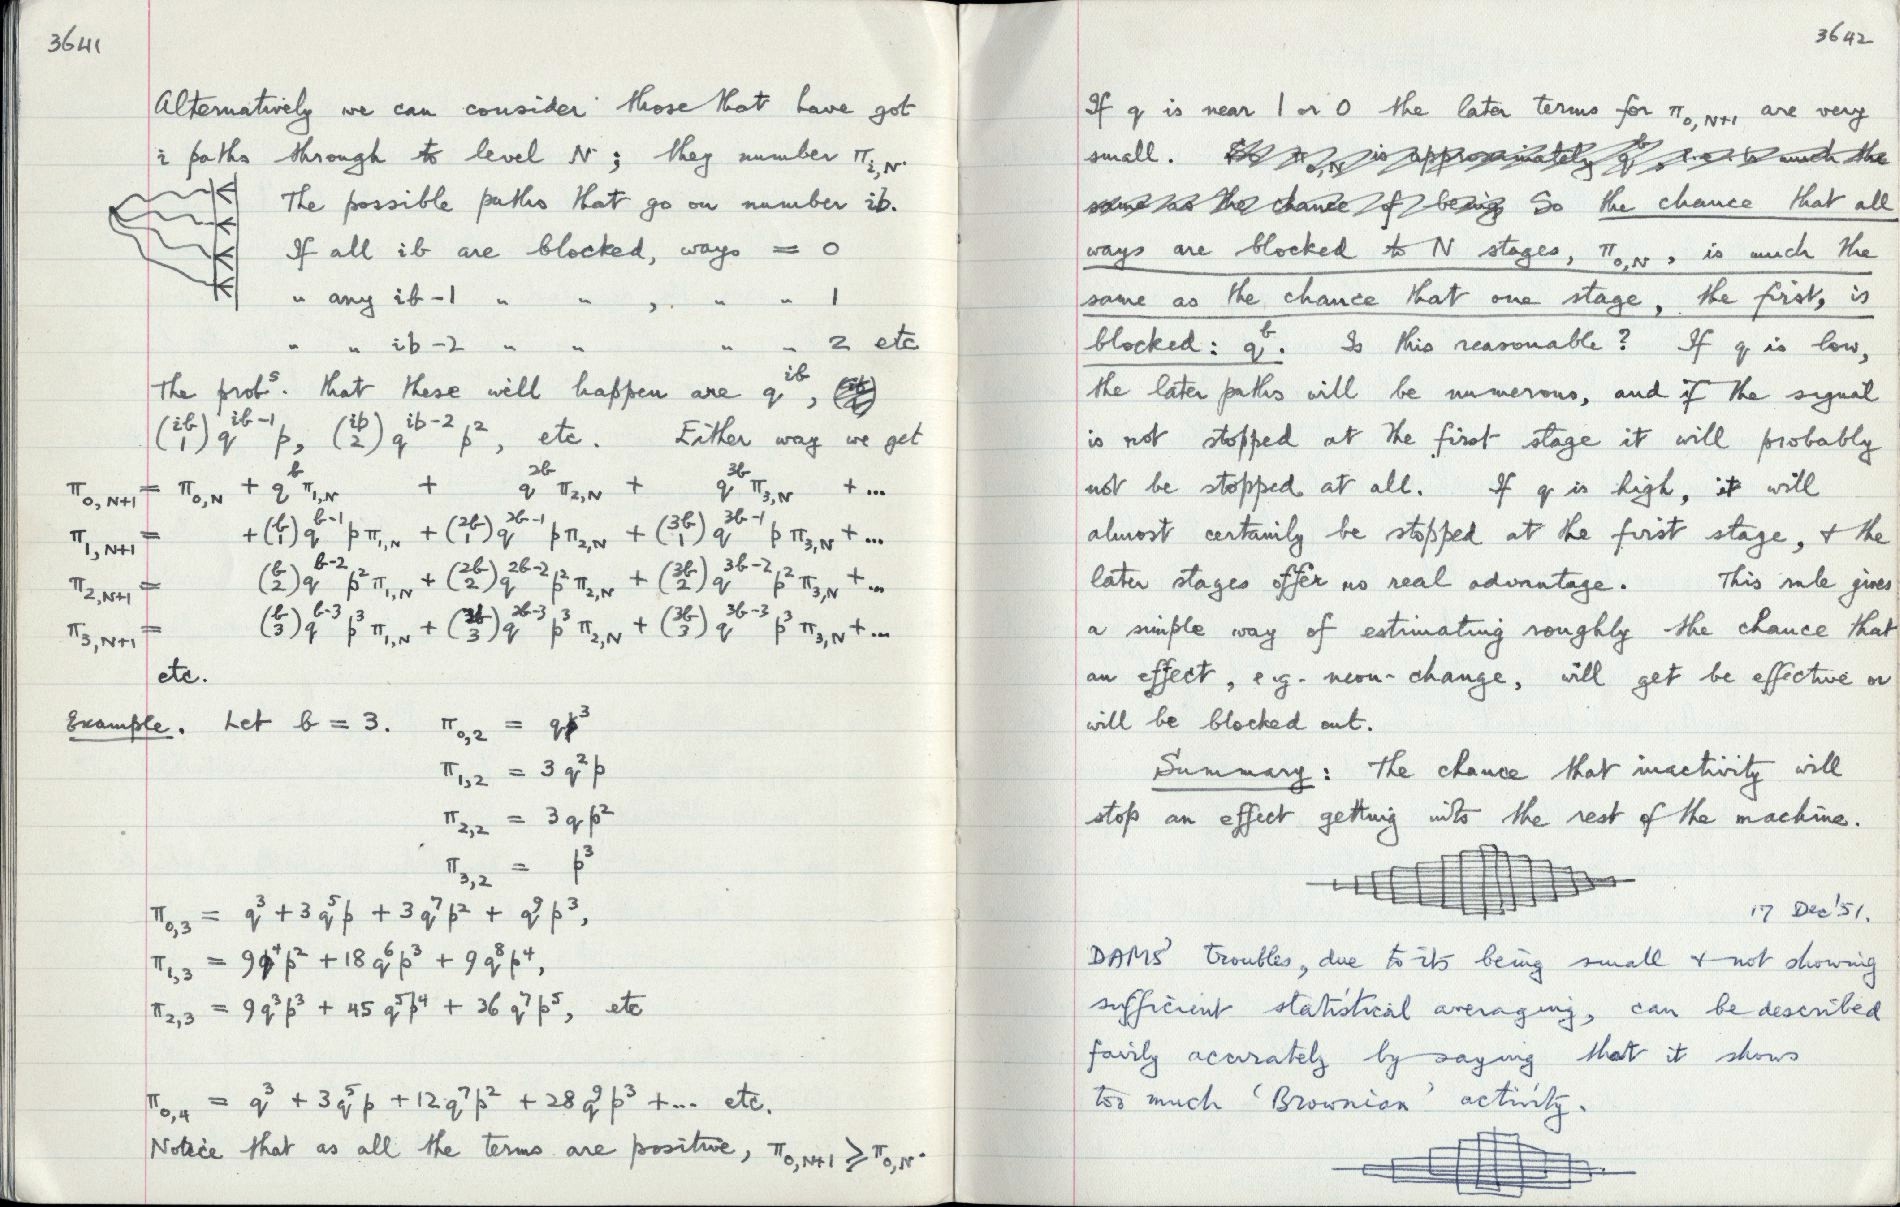 3641
Alternatively we can consider those that have got
i paths through to level N ; they number π_{i,N}.
The possible paths that go on number ib.
If all ib are blocked, ways = 0
" any ib-1 " " , " " 1
" " ib-2 " " " " 2 etc
The prob^s. that these will happen are q^{ib},
(ib 1) q^{ib-1} p, (ib 2) q^{ib-2} p², etc. Either way we get
π_{0,N+1} = π_{0,N} + q^b π_{1,N} + q^{2b} π_{2,N} + q^{3b} π_{3,N} + ...
π_{1,N+1} = + (b 1) q^{b-1} p π_{1,N} + (2b 1) q^{2b-1} p π_{2,N} + (3b 1) q^{3b-1} p π_{3,N} + ...
π_{2,N+1} = (b 2) q^{b-2} p² π_{1,N} + (2b 2) q^{2b-2} p² π_{2,N} + (3b 2) q^{3b-2} p² π_{3,N} + ...
π_{3,N+1} = (b 3) q^{b-3} p³ π_{1,N} + (2b 3) q^{2b-3} p³ π_{2,N} + (3b 3) q^{3b-3} p³ π_{3,N} + ...
etc.
Example. Let b = 3. π_{0,2} = q³
π_{1,2} = 3q²p
π_{2,2} = 3qp²
π_{3,2} = p³
π_{0,3} = q³ + 3q⁵p + 3q⁷p² + q⁹p³,
π_{1,3} = 9q⁴p² + 18q⁶p³ + 9q⁸p⁴,
π_{2,3} = 9q³p³ + 45q⁵p⁴ + 36q⁷p⁵, etc
π_{0,4} = q³ + 3q⁵p + 12q⁷p² + 28q⁹p³ + ... etc.
Notice that as all the terms are positive, π_{0,N+1} ⩾ π_{0,N}.
3642
If q is near 1 or 0 the later terms for π_{0,N+1} are very
small. So π_{0,N} is approximately q^b, i.e. is much the
same as the chance of being So the chance that all
ways are blocked to N stages, π_{0,N}, is much the
same as the chance that one stage, the first, is
blocked: q^b. Is this reasonable? If q is low,
the later paths will be numerous, and if the signal
is not stopped at the first stage it will probably
not be stopped at all. If q is high, it will
almost certainly be stopped at the first stage, & the
later stages offer no real advantage. This rule gives
a simple way of estimating roughly the chance that
an effect, e.g. neon-change, will get be effective or
will be blocked out.
Summary: The chance that inactivity will
stop an effect getting into the rest of the machine.
17 Dec '51.
DAMS' troubles, due to its being small & not showing
sufficient statistical averaging, can be described
fairly accurately by saying that it shows
too much 'Brownian' activity.